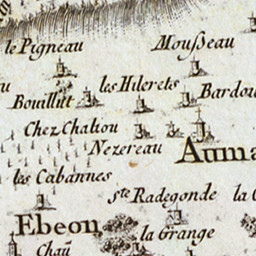 le Pigneau
Moußeau
les Hilerets
Bouillit
Bardou
Chez Chaliou
Nezereau
Auma
les Cabannes
ste Radegonde
la C
Ebeon
la Grange
Chau